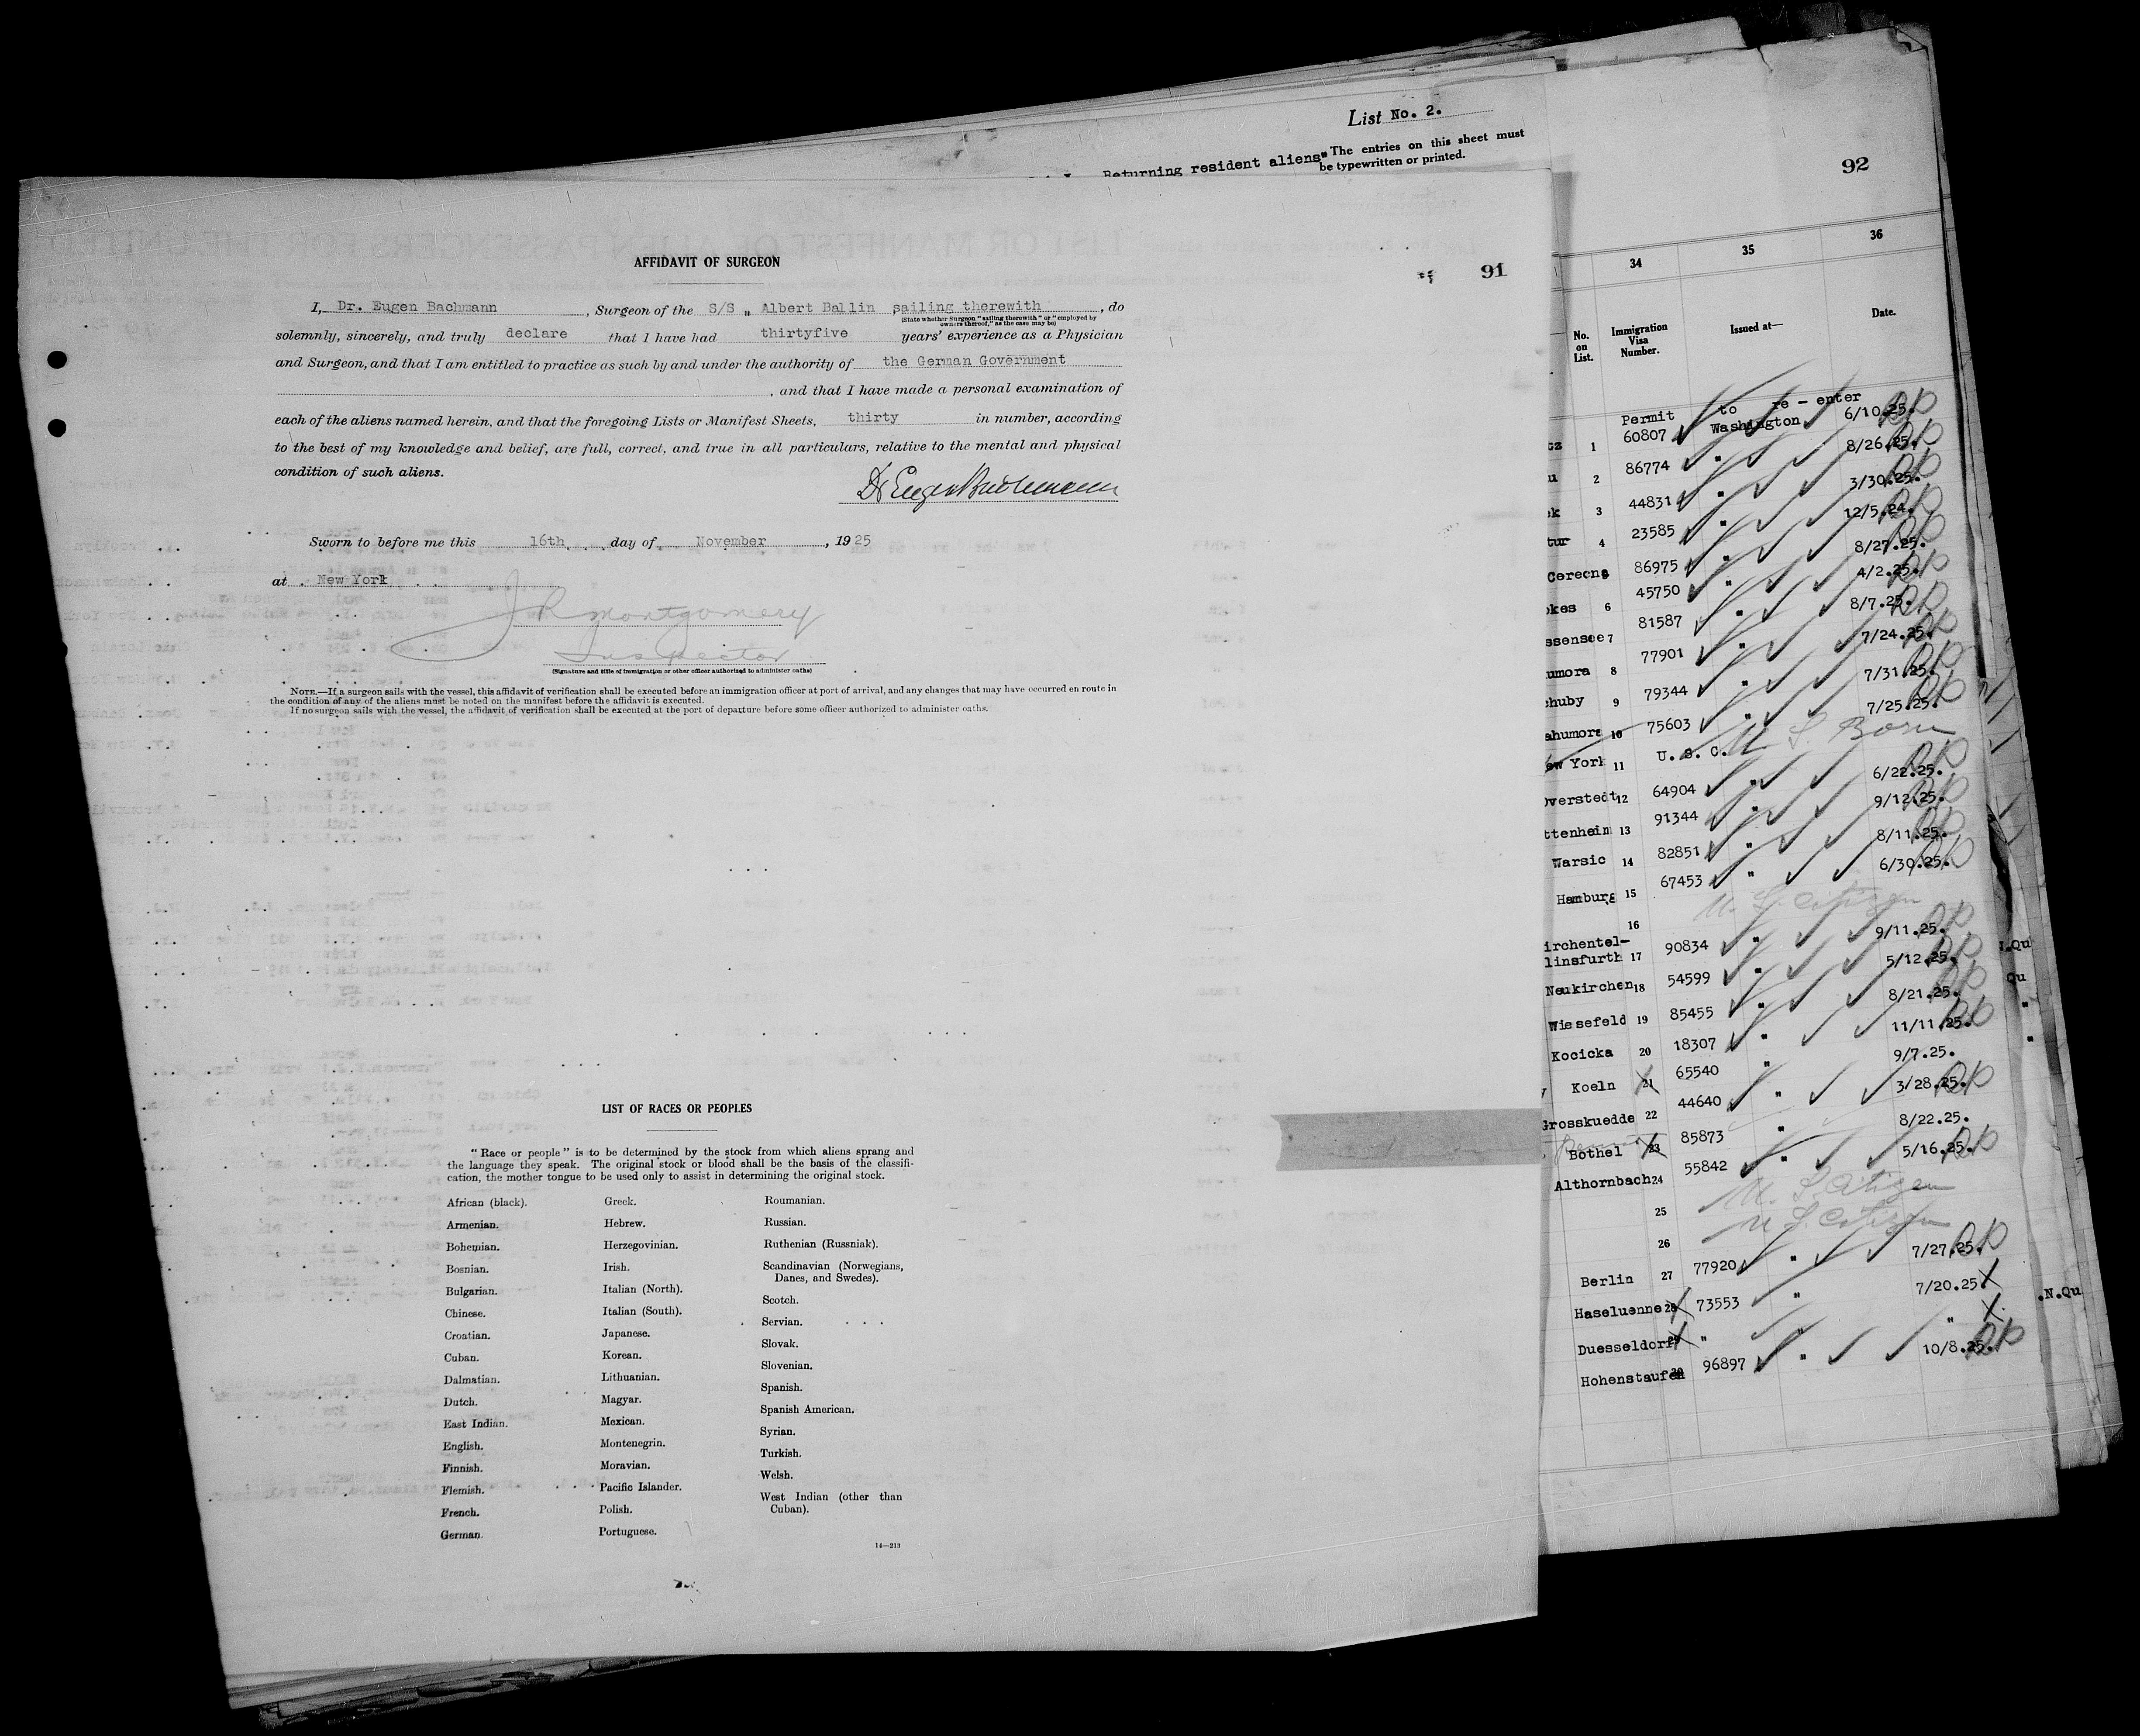 List No. 2.
Returning resident aliens"
The entries on this sheet must
be typewritten or printed.
91
AFFIDAVIT OF SURGEON
I, Dr. Eugen Bachmann, Surgeon of the S/S „ Albert Ballin sailing therewith, do
(State whether Surgeon "sailing therewith" or "employed by
owners thereof," as the case may be)
solemnly, sincerely, and truly declare that I have had thirtyfive years' experience as a Physician
and Surgeon, and that I am entitled to practice as such by and under the authority of the German Government
, and that I have made a personal examination of
each of the aliens named herein, and that the foregoing Lists or Manifest Sheets, thirty in number, according
to the best of my knowledge and belief, are full, correct, and true in all particulars, relative to the mental and physical
condition of such aliens.
Dr Eugen Bachmann
Sworn to before me this 16th day of November, 1925
at New York
J R Montgomery
Inspector
(Signature and title of immigration or other officer authorized to administer oaths)
NOTE.—If a surgeon sails with the vessel, this affidavit of verification shall be executed before an immigration officer at port of arrival, and any changes that may have occurred en route in
the condition of any of the aliens must be noted on the manifest before the affidavit is executed.
If no surgeon sails with the vessel, the affidavit of verification shall be executed at the port of departure before some officer authorized to administer oaths.
LIST OF RACES OR PEOPLES
"Race or people" is to be determined by the stock from which aliens sprang and
the language they speak. The original stock or blood shall be the basis of the classifi-
cation, the mother tongue to be used only to assist in determining the original stock.
African (black).
Armenian.
Bohemian.
Bosnian.
Bulgarian.
Chinese.
Croatian.
Cuban.
Dalmatian.
Dutch.
East Indian.
English.
Finnish.
Flemish.
French.
German.
Greek.
Hebrew.
Herzegovinian.
Irish.
Italian (North).
Italian (South).
Japanese.
Korean.
Lithuanian.
Magyar.
Mexican.
Montenegrin.
Moravian.
Pacific Islander.
Polish.
Portuguese.
Roumanian.
Russian.
Ruthenian (Russniak).
Scandinavian (Norwegians,
Danes, and Swedes).
Scotch.
Servian.
Slovak.
Slovenian.
Spanish.
Spanish American.
Syrian.
Turkish.
Welsh.
West Indian (other than
Cuban).
14—213
92
34 35 36
No. on List. Immigration Visa Number. Issued at— Date.
Permit to re-enter
tz 1 60807 Washington 6/10.25.
u 2 86774 " 8/26.25.
ek 3 44831 " 3/30.25.
tur 4 23585 " 12/5.24.
Cerecna 86975 " 8/27.25.
okes 6 45750 " 4/2.25.
ssensee 7 81587 " 8/7.25.
umora 8 77901 " 7/24.25.
huby 9 79344 " 7/31.25.
ahumora 10 75603 " 7/25.25.
ew York 11 U.S.C. U S Born
Overstedt 12 64904 " 6/22.25.
ttenheim 13 91344 " 9/12.25.
Warsic 14 82851 " 8/11.25.
Hamburg 15 67453 " 6/30.25.
16 U. S. Citizen
irchentel-
linsfurth 17 90834 " 9/11.25. N.Qu
Neukirchen 18 54599 " 5/12.25. Qu
Wiesefeld 19 85455 " 8/21.25. "
Kocicka 20 18307 " 11/11.25. "
Koeln 21 65540 " 9/7.25.
Grosskuedde 22 44640 " 3/28.25.
Bothel 23 85873 " 8/22.25.
Althornbach 24 55842 " 5/16.25.
25 U. S. Citizen
26 U S Citizen
Berlin 27 77920 " 7/27.25.
Haseluenne 28 73553 " 7/20.25 X .N.Qu
Duesseldorf " " " X
Hohenstaufen 30 96897 " 10/8.25.